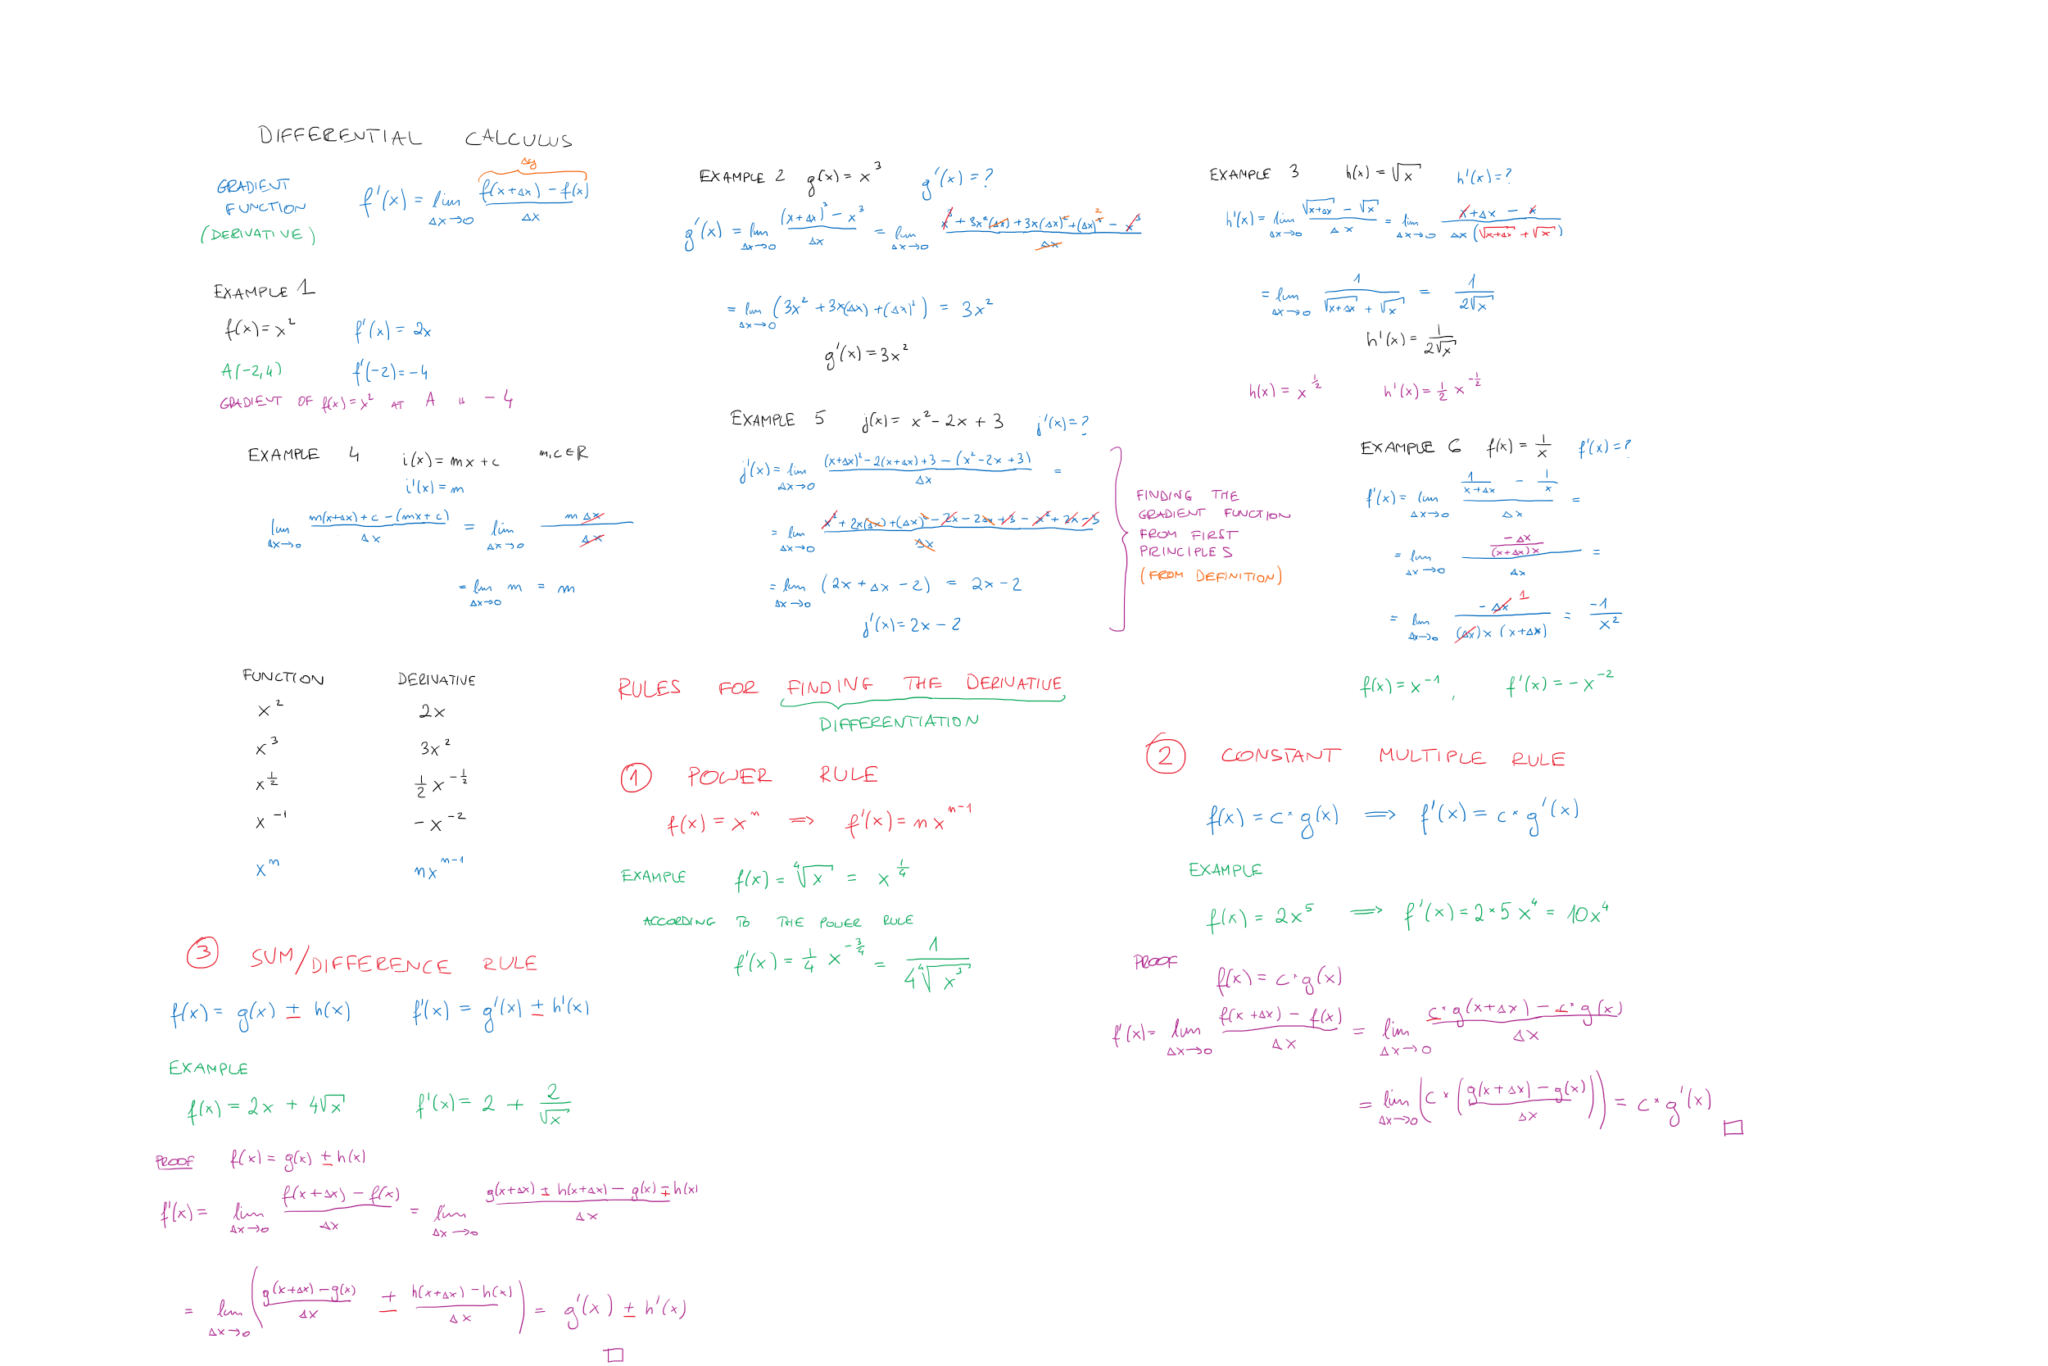 DIFFERENTIAL CALCULUS
GRADIENT FUNCTION (DERIVATIVE)
f'(x) = lim Δx→0 (f(x+Δx) - f(x))/Δx
Δy
EXAMPLE 1
f(x) = x² f'(x) = 2x
A(-2,4) f'(-2) = -4
GRADIENT OF f(x) = x² AT A is -4
EXAMPLE 2 g(x) = x³ g'(x) = ?
g'(x) = lim Δx→0 ((x+Δx)³ - x³)/Δx = lim Δx→0 (x³ + 3x²(Δx) + 3x(Δx)² + (Δx)³ - x³)/Δx
= lim Δx→0 (3x² + 3x(Δx) + (Δx)²) = 3x²
g'(x) = 3x²
EXAMPLE 3 h(x) = √x h'(x) = ?
h'(x) = lim Δx→0 (√(x+Δx) - √x)/Δx = lim Δx→0 (x+Δx - x)/(Δx(√(x+Δx) + √x))
= lim Δx→0 1/(√(x+Δx) + √x) = 1/(2√x)
h'(x) = 1/(2√x)
h(x) = x^(1/2) h'(x) = 1/2 x^(-1/2)
EXAMPLE 4 i(x) = mx + c m,c ∈ R
i'(x) = m
lim Δx→0 (m(x+Δx) + c - (mx + c))/Δx = lim Δx→0 mΔx/Δx
= lim Δx→0 m = m
EXAMPLE 5 j(x) = x² - 2x + 3 j'(x) = ?
j'(x) = lim Δx→0 ((x+Δx)² - 2(x+Δx) + 3 - (x² - 2x + 3))/Δx =
= lim Δx→0 (x² + 2x(Δx) + (Δx)² - 2x - 2Δx + 3 - x² + 2x - 3)/Δx
= lim Δx→0 (2x + Δx - 2) = 2x - 2
j'(x) = 2x - 2
FINDING THE
GRADIENT FUNCTION
FROM FIRST
PRINCIPLES
(FROM DEFINITION)
EXAMPLE 6 f(x) = 1/x f'(x) = ?
f'(x) = lim Δx→0 (1/(x+Δx) - 1/x)/Δx =
= lim Δx→0 (-Δx/((x+Δx)x))/Δx =
= lim Δx→0 -Δx 1/((Δx)x(x+Δx)) = -1/x²
f(x) = x⁻¹, f'(x) = -x⁻²
FUNCTION DERIVATIVE
x² 2x
x³ 3x²
x^(1/2) 1/2 x^(-1/2)
x⁻¹ -x⁻²
xⁿ nxⁿ⁻¹
RULES FOR FINDING THE DERIVATIVE
DIFFERENTIATION
① POWER RULE
f(x) = xⁿ ⟹ f'(x) = nxⁿ⁻¹
EXAMPLE f(x) = ⁴√x = x^(1/4)
ACCORDING TO THE POWER RULE
f'(x) = 1/4 x^(-3/4) = 1/(4 ⁴√x³)
② CONSTANT MULTIPLE RULE
f(x) = c·g(x) ⟹ f'(x) = c·g'(x)
EXAMPLE
f(x) = 2x⁵ ⟹ f'(x) = 2·5x⁴ = 10x⁴
PROOF
f(x) = c·g(x)
f'(x) = lim Δx→0 (f(x+Δx) - f(x))/Δx = lim Δx→0 (c·g(x+Δx) - c·g(x))/Δx
= lim Δx→0 (c·((g(x+Δx) - g(x))/Δx)) = c·g'(x) □
③ SUM/DIFFERENCE RULE
f(x) = g(x) ± h(x) f'(x) = g'(x) ± h'(x)
EXAMPLE
f(x) = 2x + 4√x f'(x) = 2 + 2/√x
PROOF f(x) = g(x) ± h(x)
f'(x) = lim Δx→0 (f(x+Δx) - f(x))/Δx = lim Δx→0 (g(x+Δx) ± h(x+Δx) - g(x) ∓ h(x))/Δx
= lim Δx→0 ((g(x+Δx) - g(x))/Δx ± (h(x+Δx) - h(x))/Δx) = g'(x) ± h'(x)
□